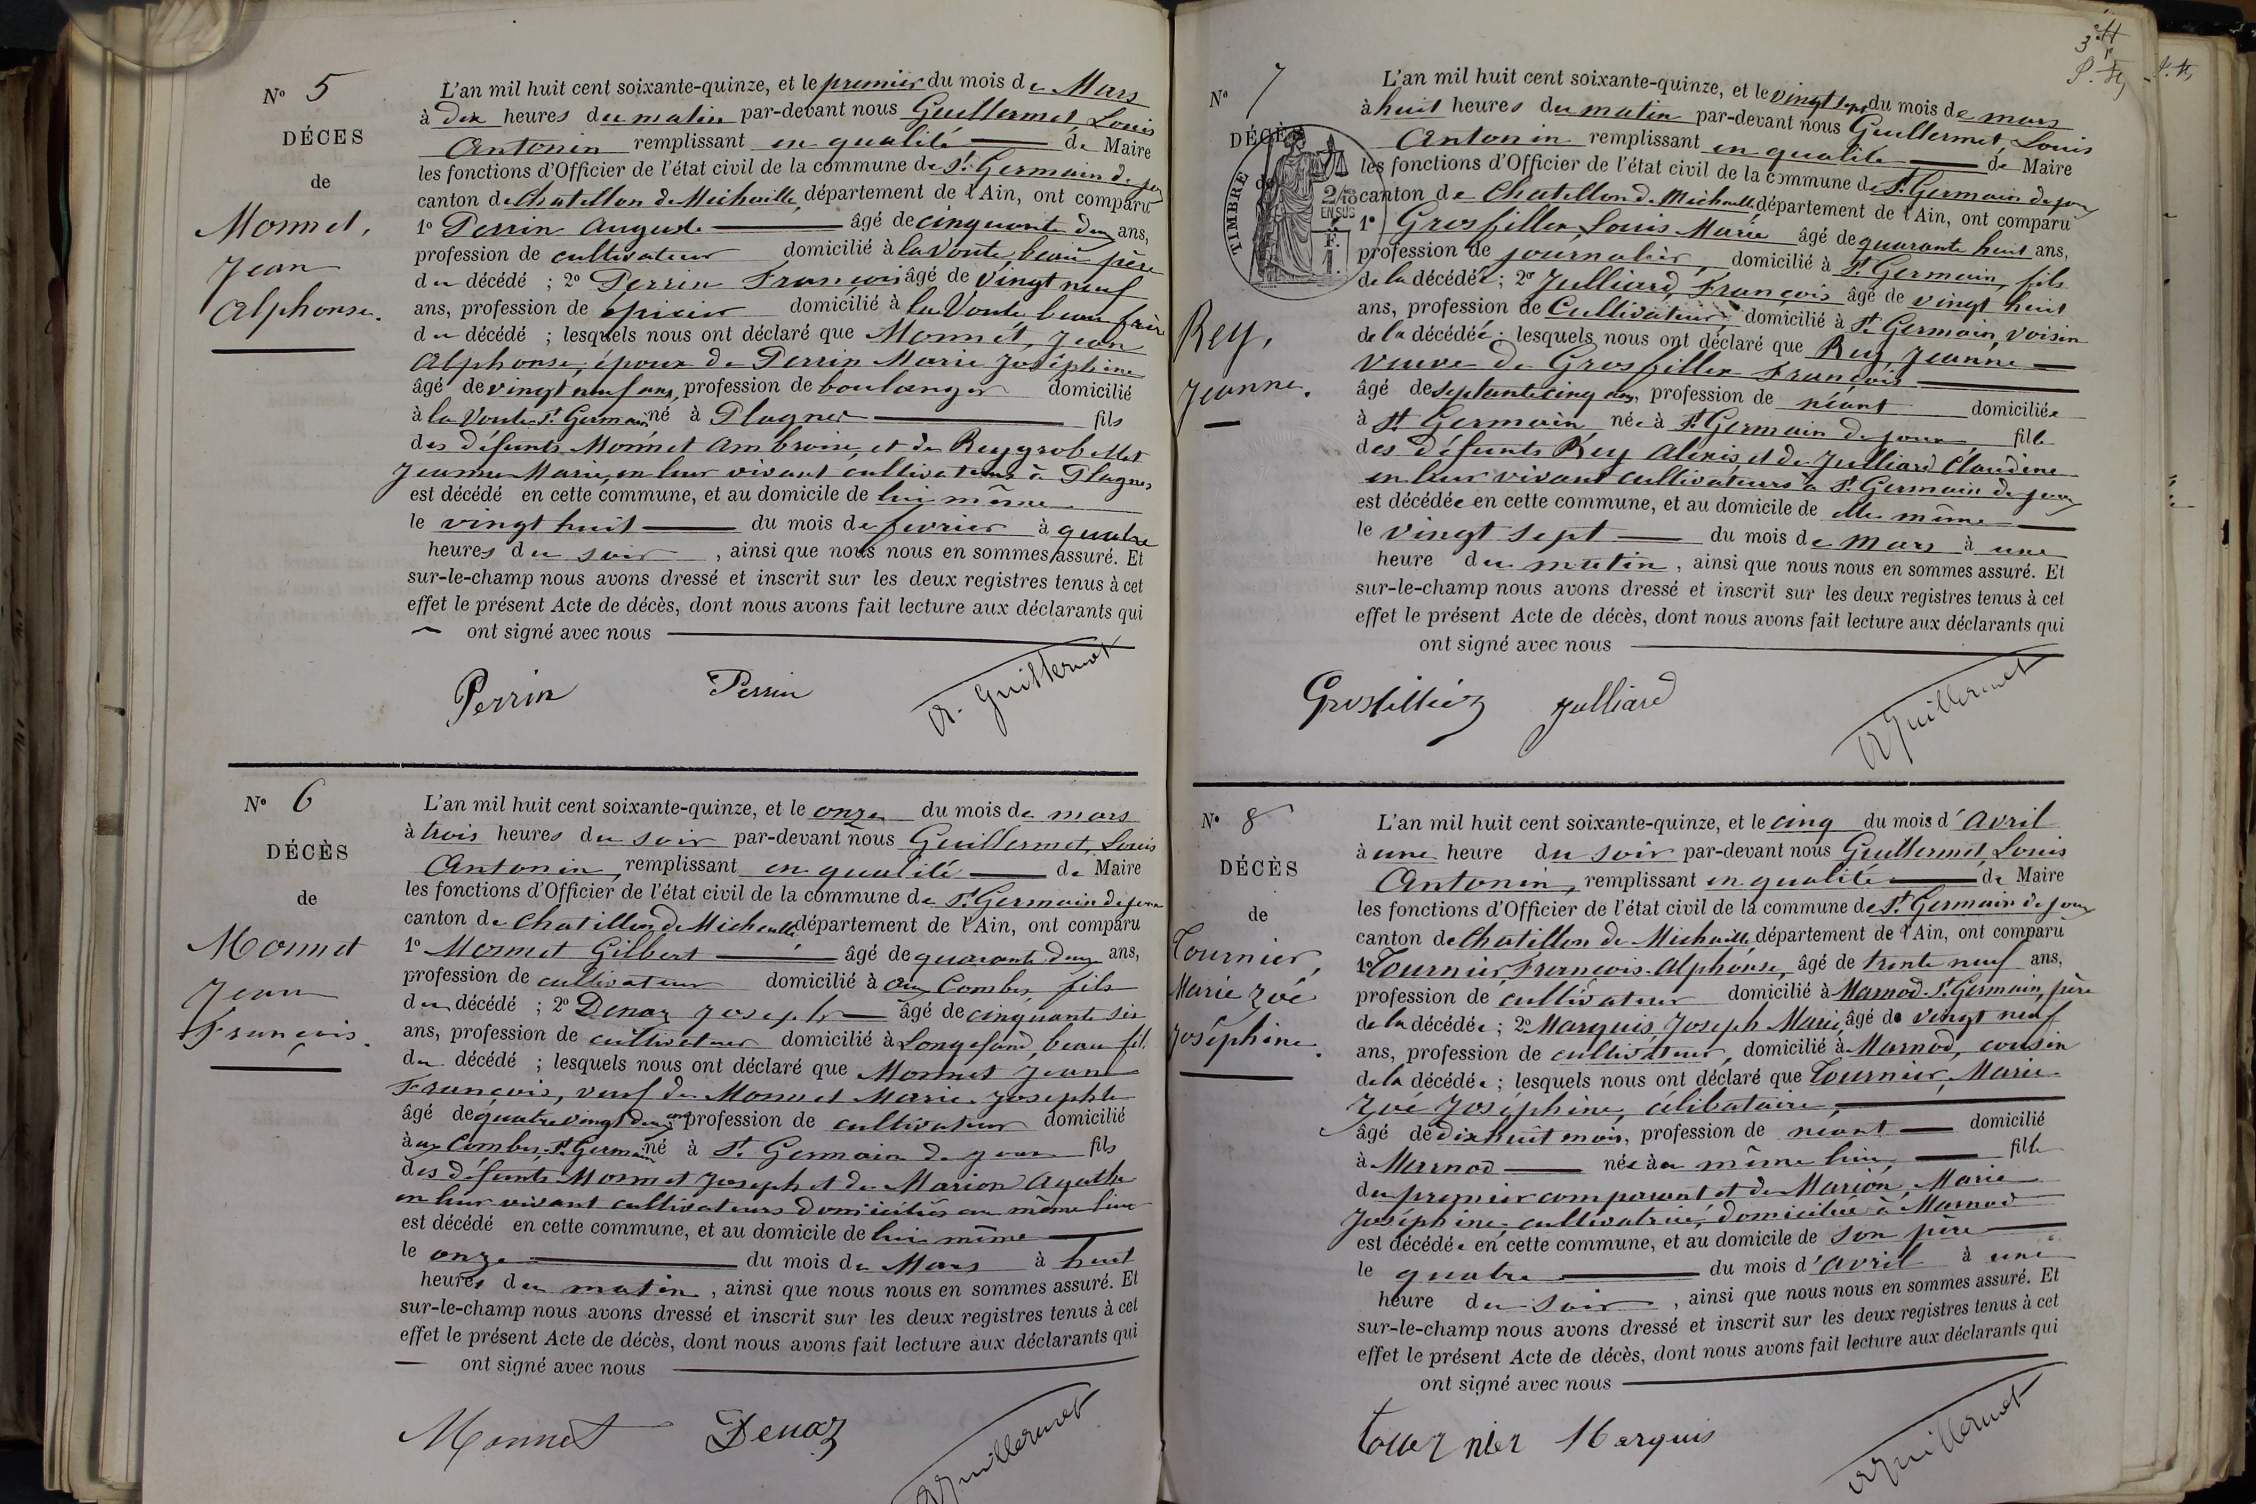 N° 5
DÉCES
de
Monnet,
Jean
Alphonse.
L'an mil huit cent soixante-quinze, et le premier du mois de Mars
à dix heures du matin par-devant nous Guillermet, Louis
Antonin remplissant en qualité de Maire
les fonctions d'Officier de l'état civil de la commune de St. Germain de joux
canton de Chatillon de Michaille, département de l'Ain, ont comparu
1° Perrin Auguste âgé de cinquante deux ans,
profession de cultivateur domicilié à la Voute, beau père
du décédé ; 2° Perrin François âgé de vingt neuf
ans, profession de épicier domicilié à la Voute beau frère
du décédé ; lesquels nous ont déclaré que Monnet, Jean
Alphonse, époux de Perrin Marie Joséphine
âgé de vingt neuf ans, profession de boulanger domicilié
à la Voute St. Germain né à Plagnes fils
des défunts Monnet Ambroise, et de Reygrobellet
Jeanne Marie, en leur vivant cultivateurs à Plagnes
est décédé en cette commune, et au domicile de lui même
le vingt huit du mois de fevrier à quatre
heures du soir, ainsi que nous nous en sommes assuré. Et
sur-le-champ nous avons dressé et inscrit sur les deux registres tenus à cet
effet le présent Acte de décès, dont nous avons fait lecture aux déclarants qui
ont signé avec nous
Perrin Perrin A. Guillermet
N° 6
DÉCÈS
de
Monnet
Jean
François.
L'an mil huit cent soixante-quinze, et le onze du mois de mars
à trois heures du soir par-devant nous Guillermet, Louis
Antonin, remplissant en qualité de Maire
les fonctions d'Officier de l'état civil de la commune de St. Germain de joux
canton de Chatillon de Michaille département de l'Ain, ont comparu
1° Monnet Gilbert âgé de quarante deux ans,
profession de cultivateur domicilié à aux Combes, fils
du décédé ; 2° Denaz Joseph âgé de cinquante six
ans, profession de cultivateur domicilié à Longefand, beau fils
du décédé ; lesquels nous ont déclaré que Monnet Jean
François, veuf de Monnet Marie Josephte
âgé de quatre vingt deux ans profession de cultivateur domicilié
à aux Combes, St. Germain né à St. Germain de joux fils
des défunts Monnet Joseph et de Marion Agathe
en leur vivant cultivateurs domiciliés au même lieu
est décédé en cette commune, et au domicile de lui même
le onze du mois de Mars à huit
heures du matin, ainsi que nous nous en sommes assuré. Et
sur-le-champ nous avons dressé et inscrit sur les deux registres tenus à cet
effet le présent Acte de décès, dont nous avons fait lecture aux déclarants qui
ont signé avec nous
Monnet Denaz A Guillermet
N° 7
DÉCÈS
de
TIMBRE
2/10
EN SUS
F.
1.
Rey,
Jeanne.
L'an mil huit cent soixante-quinze, et le vingt sept du mois de mars
à huit heures du matin par-devant nous Guillermet, Louis
Antonin remplissant en qualité de Maire
les fonctions d'Officier de l'état civil de la commune de St. Germain de joux
canton de Chatillon de Michaille département de l'Ain, ont comparu
1° Grosfillex, Louis Marie âgé de quarante huit ans,
profession de journalier, domicilié à St. Germain, fils
de la décédée ; 2° Julliard, François âgé de vingt huit
ans, profession de Cultivateur, domicilié à St. Germain, voisin
de la décédée ; lesquels nous ont déclaré que Rey, Jeanne
veuve de Grosfillex François
âgé de septante cinq ans, profession de néant domiciliée
à St. Germain née à St. Germain de joux, fille
des défunts Rey Alexis et de Julliard Claudine
en leur vivant cultivateurs à St. Germain de joux
est décédée en cette commune, et au domicile de elle même
le vingt sept du mois de mars à une
heure du matin, ainsi que nous nous en sommes assuré. Et
sur-le-champ nous avons dressé et inscrit sur les deux registres tenus à cet
effet le présent Acte de décès, dont nous avons fait lecture aux déclarants qui
ont signé avec nous
Grosfilliéz Julliard A Guillermet
N° 8
DÉCÈS
de
Tournier,
Marie Zoé
Joséphine.
L'an mil huit cent soixante-quinze, et le cinq du mois d'avril
à une heure du soir par-devant nous Guillermet, Louis
Antonin, remplissant en qualité de Maire
les fonctions d'Officier de l'état civil de la commune de St. Germain de joux
canton de Chatillon de Michaille département de l'Ain, ont comparu
1° Tournier, François-Alphonse, âgé de trente neuf ans,
profession de cultivateur domicilié à Marnod-St. Germain, père
de la décédée ; 2° Marquis, Joseph Marie, âgé de vingt neuf
ans, profession de cultivateur, domicilié à Marnod, cousin
de la décédée ; lesquels nous ont déclaré que Tournier, Marie
Zoé Joséphine, célibataire,
âgé de dix huit mois, profession de néant domicilié
à Marnod née à au même lieu, fille
du premier comparant et de Marion, Marie
Joséphine, cultivatrice, domiciliée à Marnod
est décédée en cette commune, et au domicile de son père
le quatre du mois d'avril à une
heure du soir, ainsi que nous nous en sommes assuré. Et
sur-le-champ nous avons dressé et inscrit sur les deux registres tenus à cet
effet le présent Acte de décès, dont nous avons fait lecture aux déclarants qui
ont signé avec nous
Tournier Marquis A Guillermet